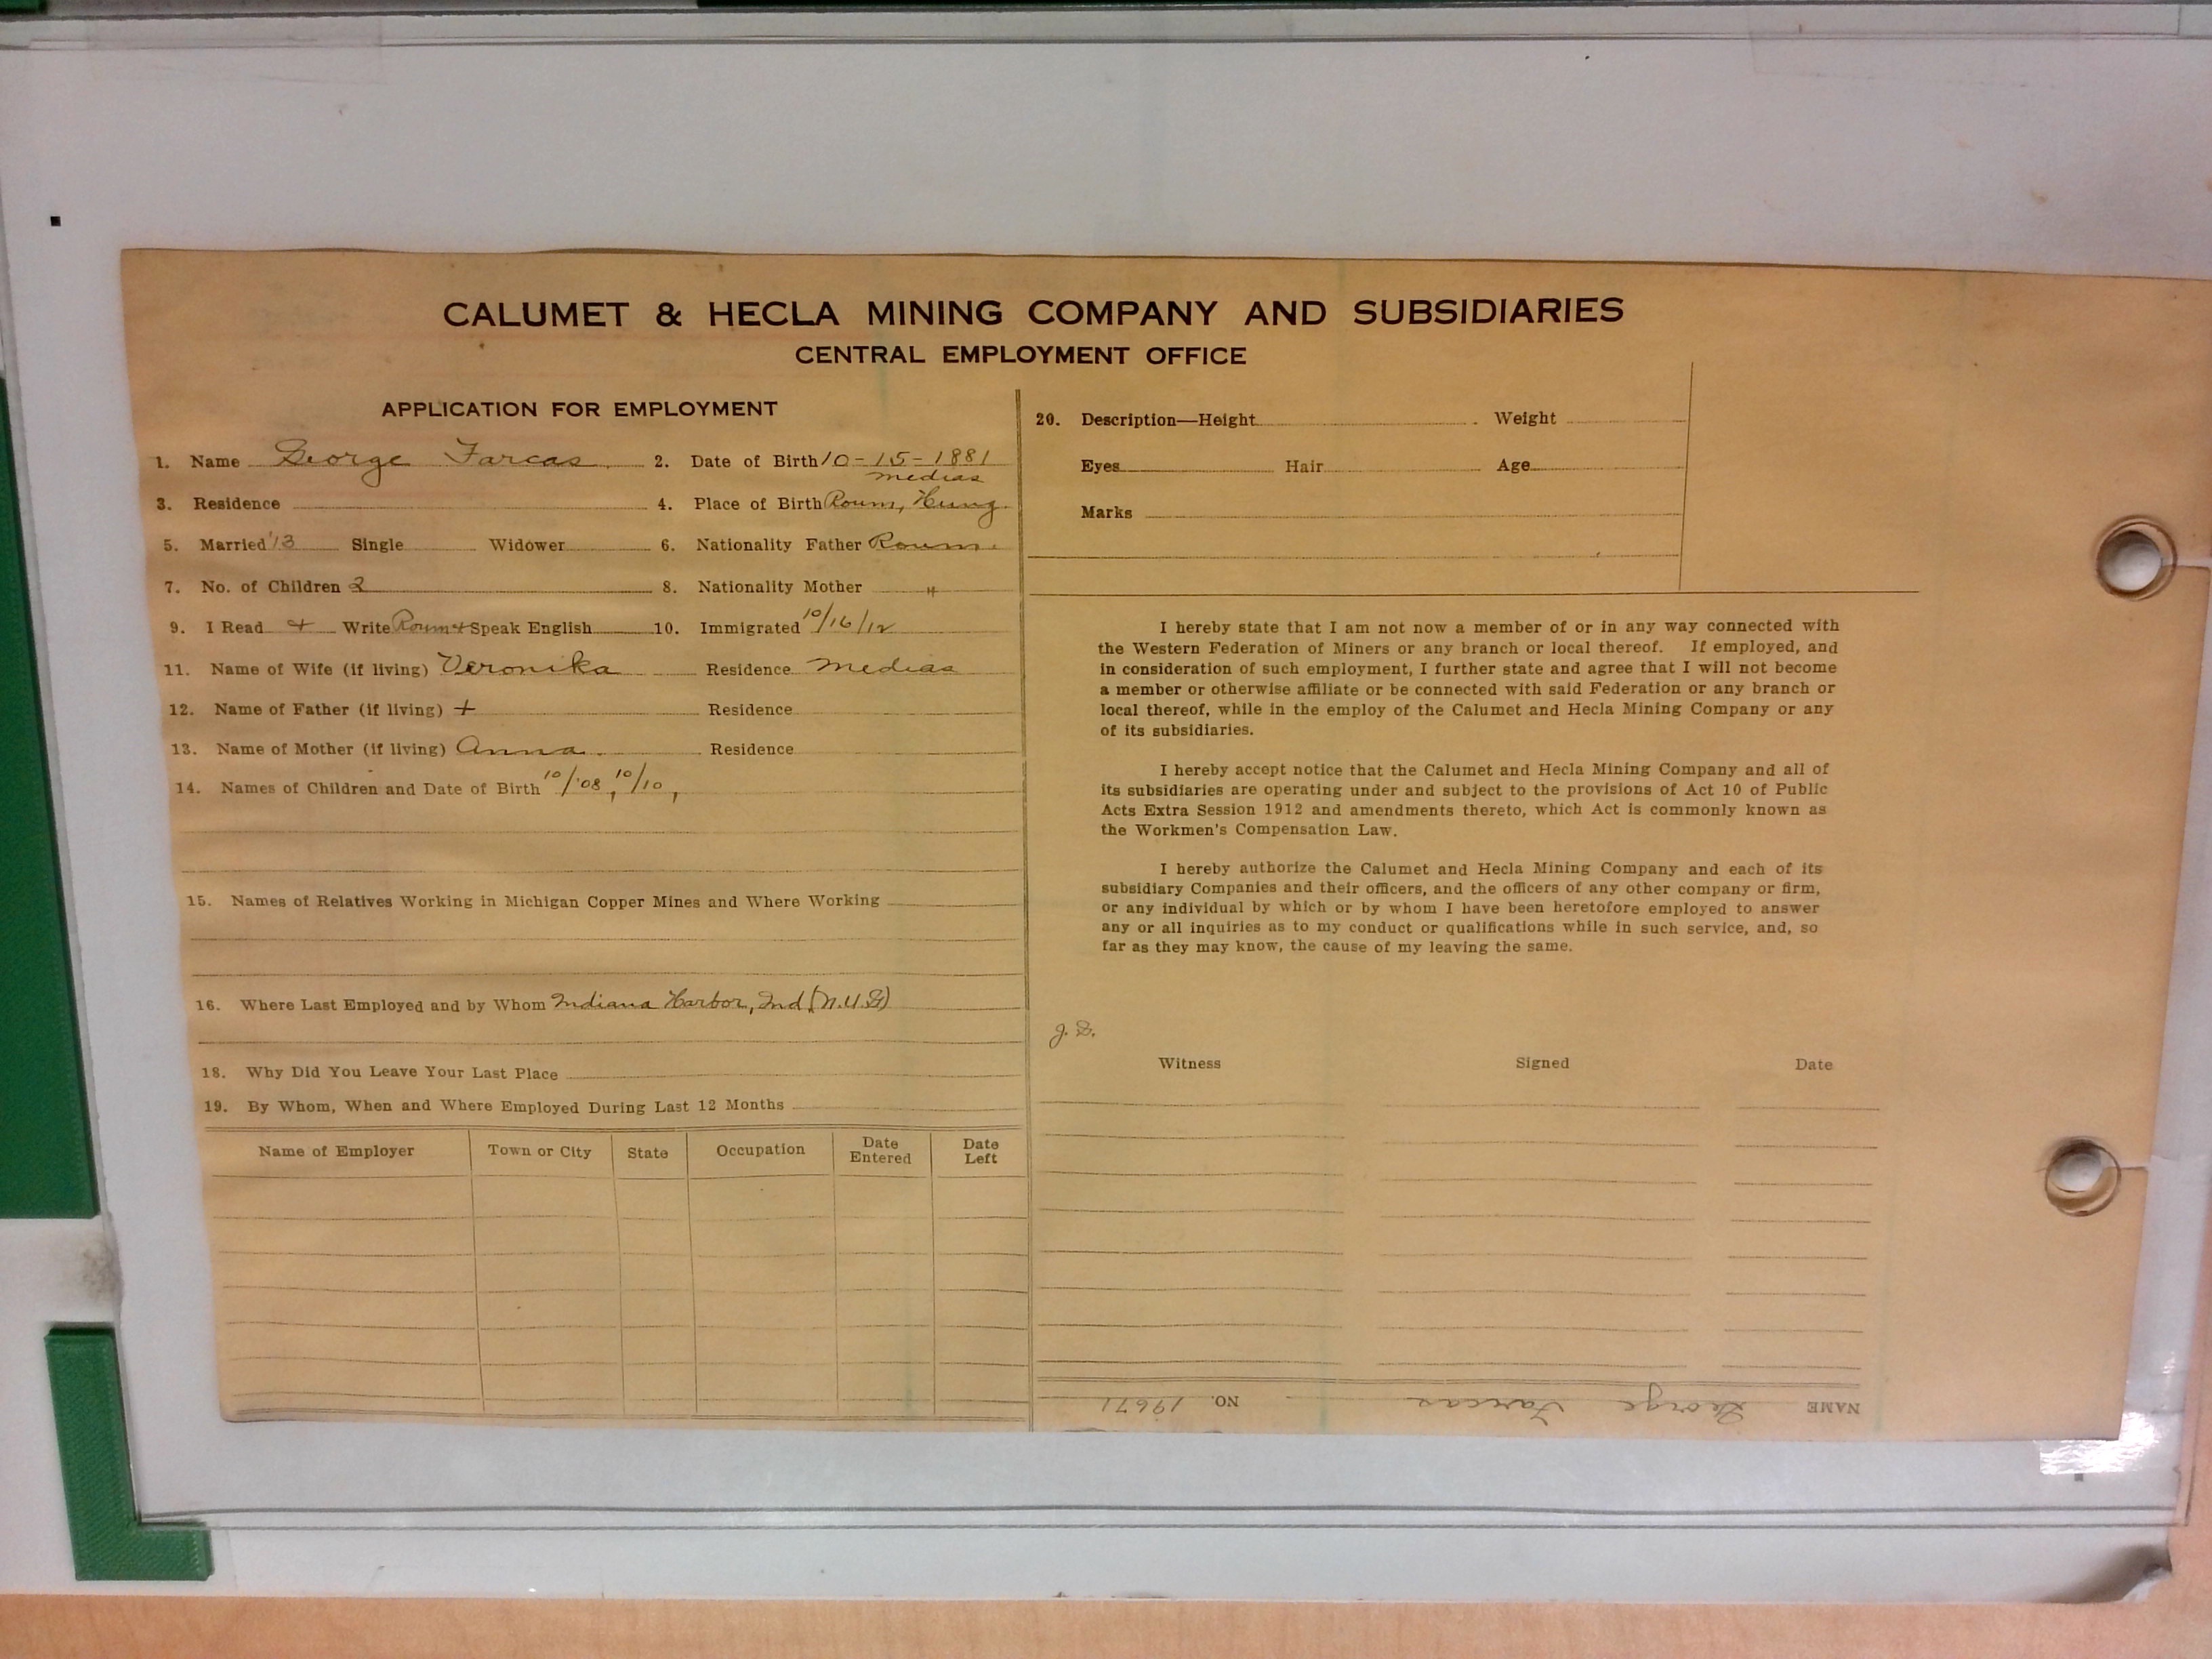 CALUMET & HECLA MINING COMPANY AND SUBSIDIARIES
CENTRAL EMPLOYMENT OFFICE
APPLICATION FOR EMPLOYMENT
1. Name George Farcas 2. Date of Birth 10-15-1881
medias
3. Residence 4. Place of Birth Roum, Hung.
5. Married '13 Single Widower 6. Nationality Father Roum
7. No. of Children 2 8. Nationality Mother "
9. I Read + Write Roum + Speak English 10. Immigrated 10/16/12
11. Name of Wife (if living) Veronika Residence medias
12. Name of Father (if living) + Residence
13. Name of Mother (if living) Anna Residence
14. Names of Children and Date of Birth 10/'08, 10/10,
15. Names of Relatives Working in Michigan Copper Mines and Where Working
16. Where Last Employed and by Whom Indiana Harbor, Ind.
18. Why Did You Leave Your Last Place
19. By Whom, When and Where Employed During Last 12 Months
Name of Employer Town or City State Occupation Date Entered Date Left
20. Description—Height Weight
Eyes Hair Age
Marks
I hereby state that I am not now a member of or in any way connected with
the Western Federation of Miners or any branch or local thereof. If employed, and
in consideration of such employment, I further state and agree that I will not become
a member or otherwise affiliate or be connected with said Federation or any branch or
local thereof, while in the employ of the Calumet and Hecla Mining Company or any
of its subsidiaries.
I hereby accept notice that the Calumet and Hecla Mining Company and all of
its subsidiaries are operating under and subject to the provisions of Act 10 of Public
Acts Extra Session 1912 and amendments thereto, which Act is commonly known as
the Workmen's Compensation Law.
I hereby authorize the Calumet and Hecla Mining Company and each of its
subsidiary Companies and their officers, and the officers of any other company or firm,
or any individual by which or by whom I have been heretofore employed to answer
any or all inquiries as to my conduct or qualifications while in such service, and, so
far as they may know, the cause of my leaving the same.
Witness Signed Date
NAME George Farcas NO. 19671